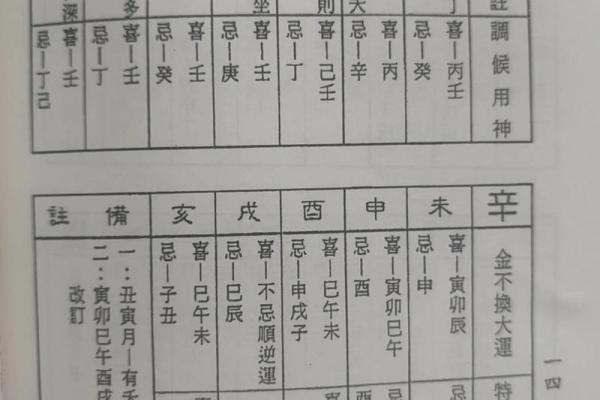 調候用神
喜—丙壬
忌—癸
喜—丙
忌—辛
喜—己壬
忌—丁
喜—壬
忌—庚
喜—壬
忌—癸
喜—壬
忌—丁
喜—壬
忌—丁己
註
則
大
坐
多
深
辛
金不換大運
特
未
喜—寅卯辰
忌—申
忌
申
喜—寅卯巳午
忌—酉
忌
酉
酉
喜—巳午未
忌—申戌子
喜
戌
喜—不忌順逆運
忌—巳辰
亥
喜—巳午未
忌—子丑
喜
備註
一：丑寅月—有
二：寅卯巳午酉戌
改訂
一四